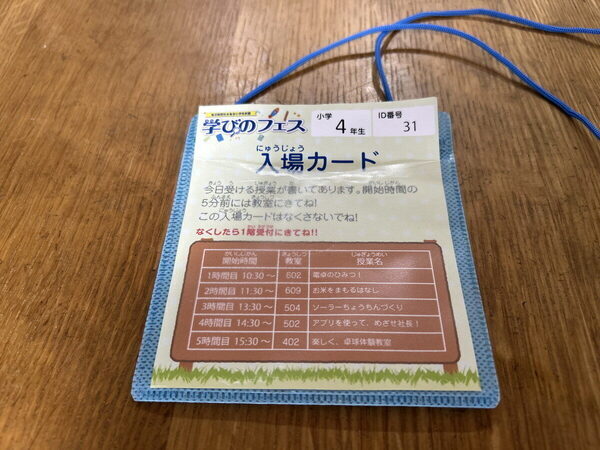 学びのフェス
小学 4年生
ID番号 31
にゅうじょう
入場カード
きょう う じゅぎょう か かいしじかん
今日受ける授業が書いてあります。開始時間の
ふんまえ きょうしつ
5分前には教室にきてね!
にゅうじょう
この入場カードはなくさないでね!
なくしたら1階受付にきてね!!
かいしじかん きょうしつ じゅぎょうめい
開始時間 教室 授業名
1時間目 10:30〜 602 電卓のひみつ!
2時間目 11:30〜 609 お米をまもるはなし
3時間目 13:30〜 504 ソーラーちょうちんづくり
4時間目 14:30〜 502 アプリを使って、めざせ社長!
5時間目 15:30〜 402 楽しく、卓球体験教室